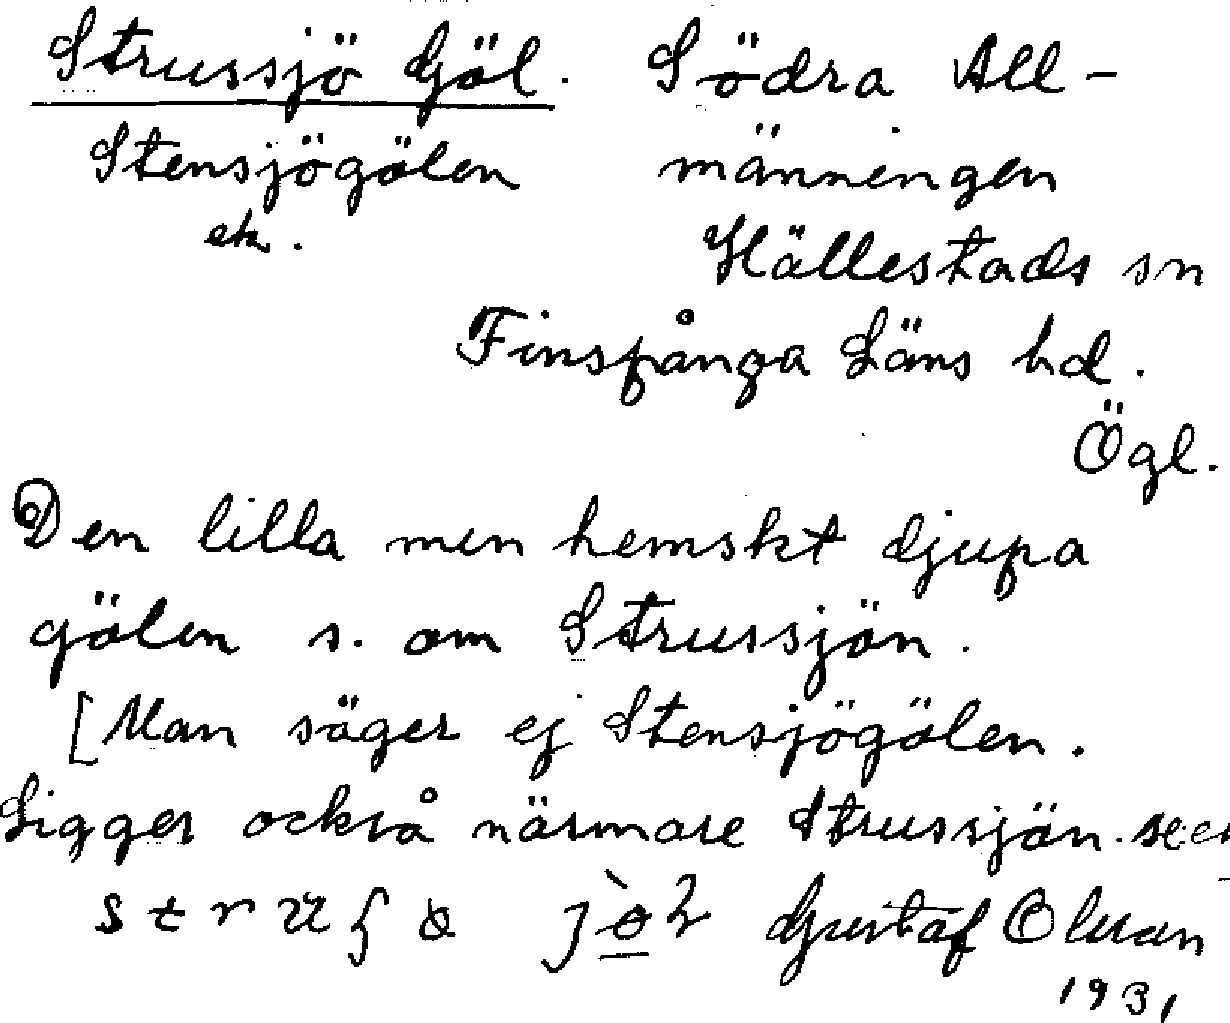 Strussjö Göl. Södra All-
Stensjögölen männingen
ek. Hällestads sn
Finspånga Läns hd.
Ögl.
Den lilla men hemskt djupa
gölen s. om Strussjön.
[Man säger ej Stensjögölen.
Ligger också närmare Strussjön.
Gustaf Olman
1931